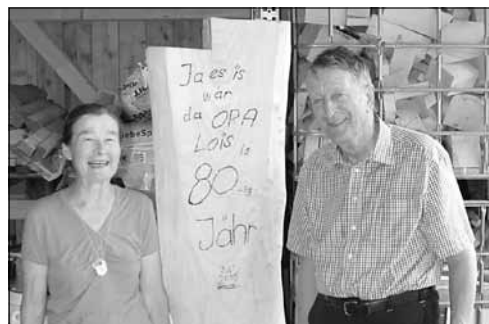 Ja es is
war
da OPA
Lois is
80-ig
Jahr